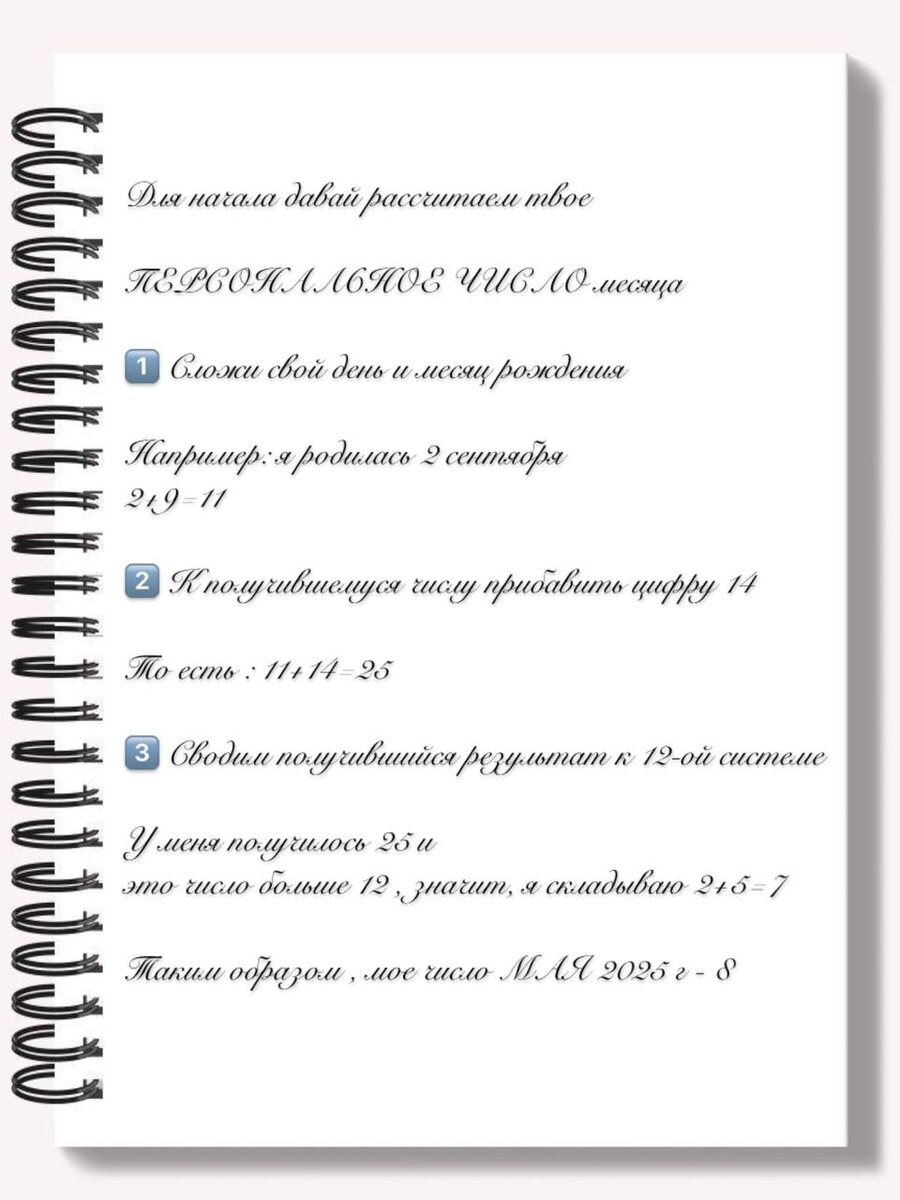 Для начала давай рассчитаем твое
ПЕРСОНАЛЬНОЕ ЧИСЛО месяца
1 Сложи свой день и месяц рождения
Например: я родилась 2 сентября
2+9=11
2 К получившемуся числу прибавить цифру 14
То есть : 11+14=25
3 Сводим получившийся результат к 12-ой системе
У меня получилось 25 и
это число больше 12 , значит, я складываю 2+5=7
Таким образом , мое число МАЯ 2025 г - 8